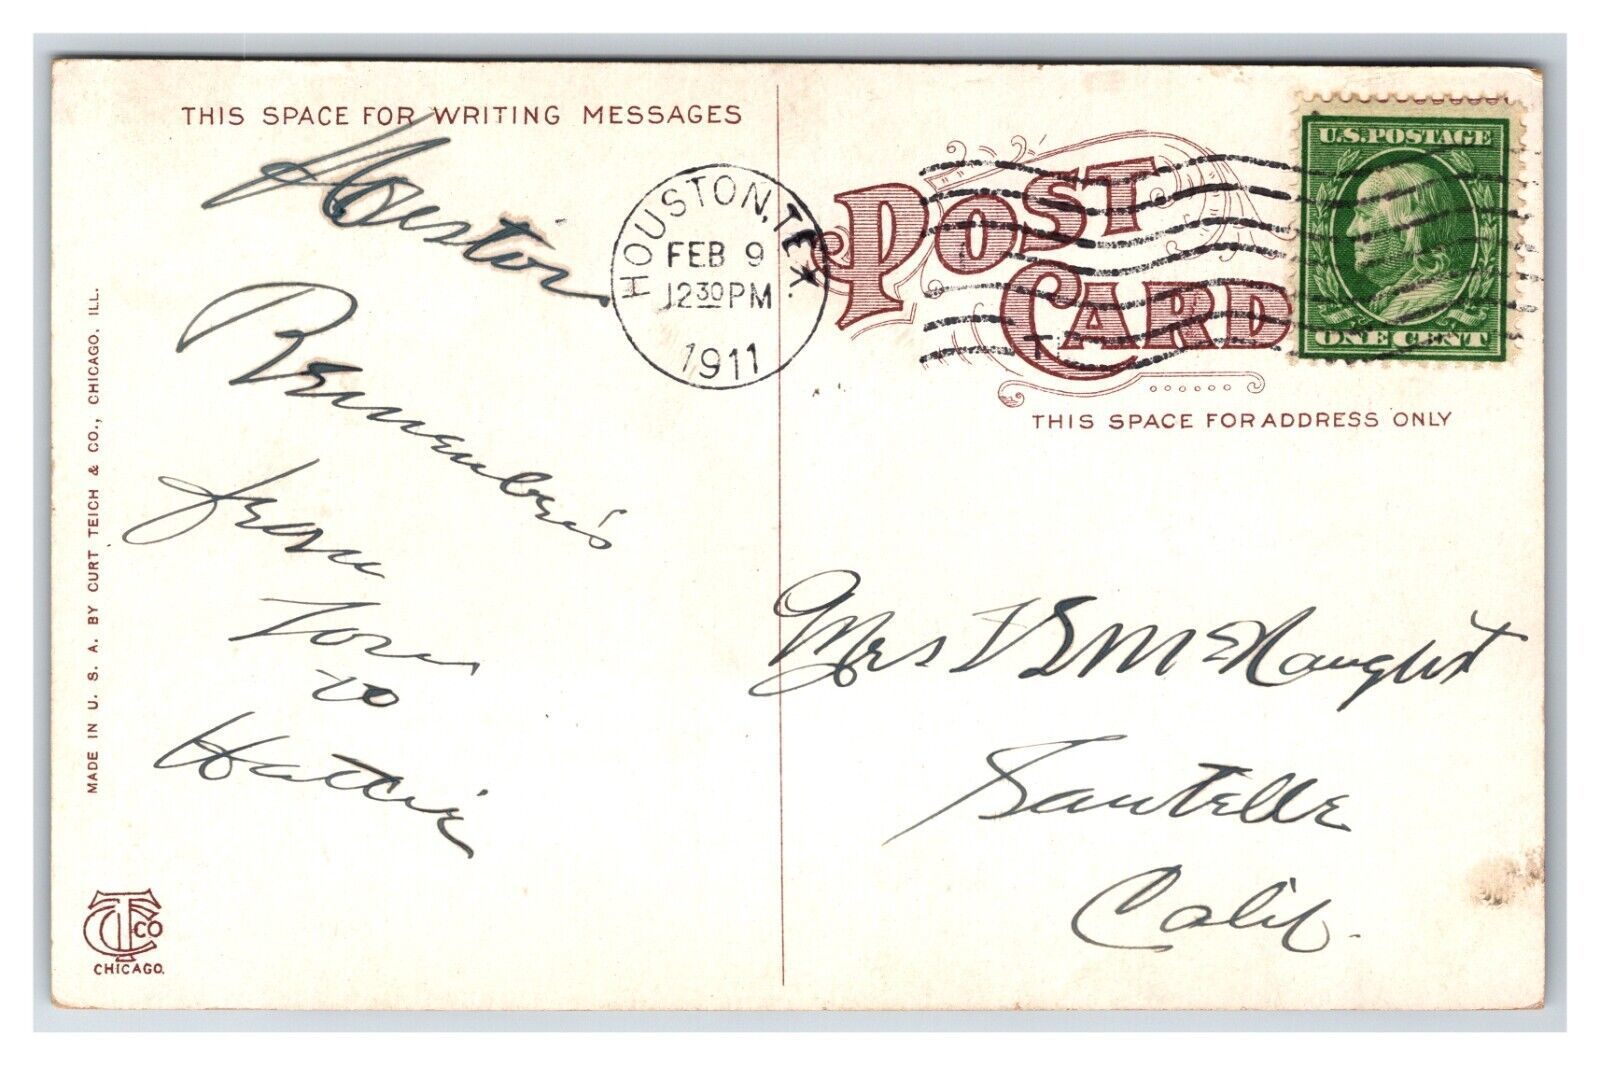 THIS SPACE FOR WRITING MESSAGES
Houston
Remember's
from
to
Hattie
MADE IN U. S. A. BY CURT TEICH & CO., CHICAGO. ILL.
CTCO
CHICAGO.
HOUSTON, TEX.
FEB 9
12 30 PM
1911
POST
CARD
U.S. POSTAGE
ONE CENT
THIS SPACE FOR ADDRESS ONLY
Mrs McNaught
Sawtelle
Calif.